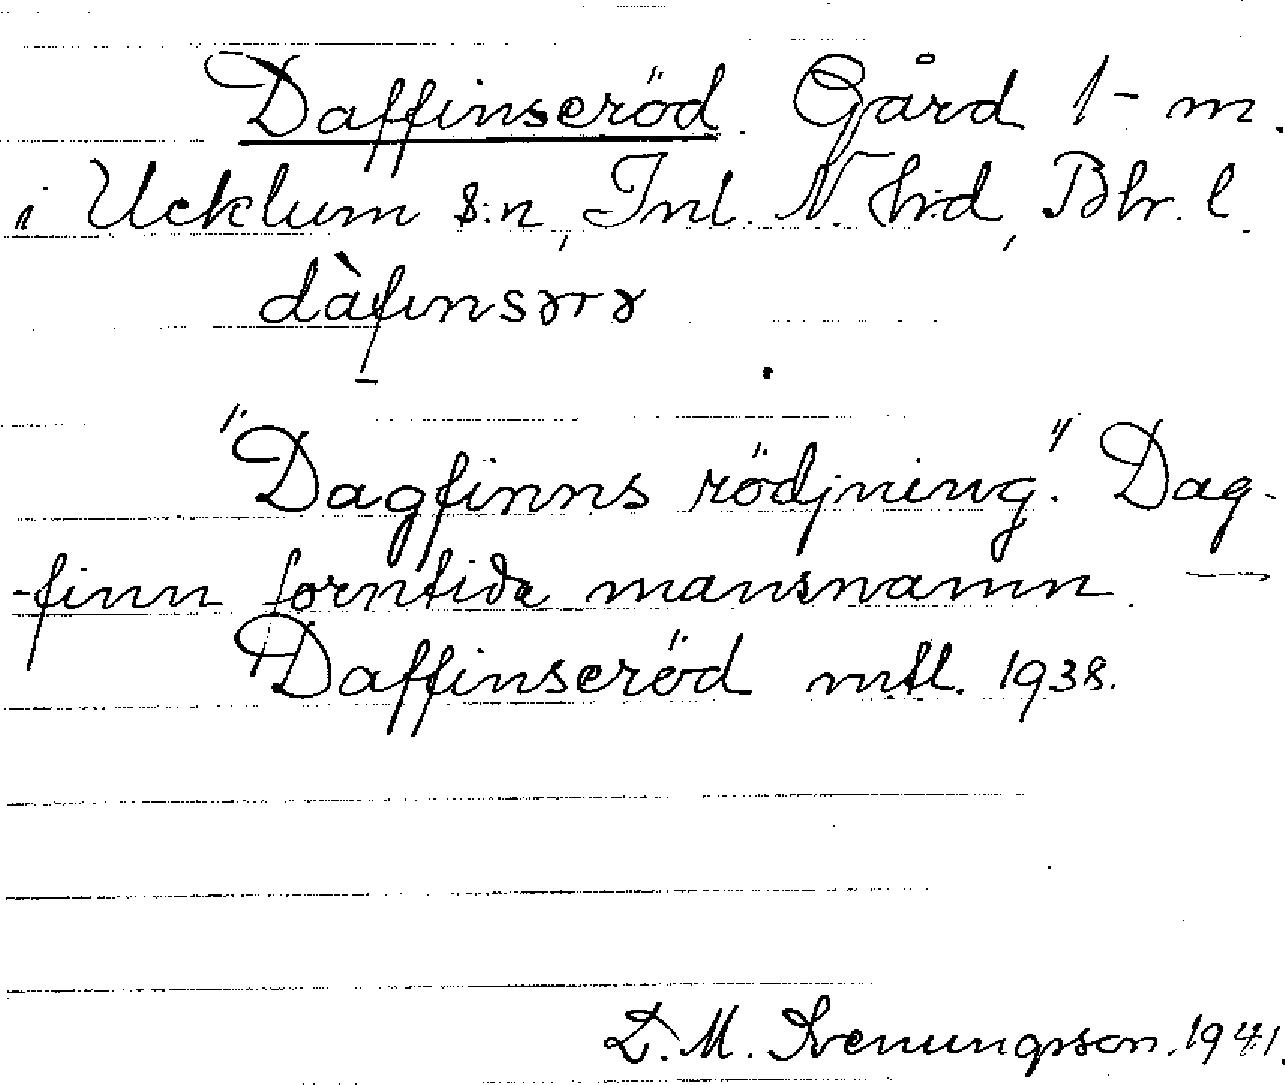 Daffinseröd. Gård 1 - m.
i Ucklum s:n, Inl. N. hrd, Bhr. l.
dàfinsərə
"Dagfinns rödjning." Dag-
-finn forntida mansnamn. —
Daffinseröd mtl. 1938.
D. M. Svenungsson. 1941.